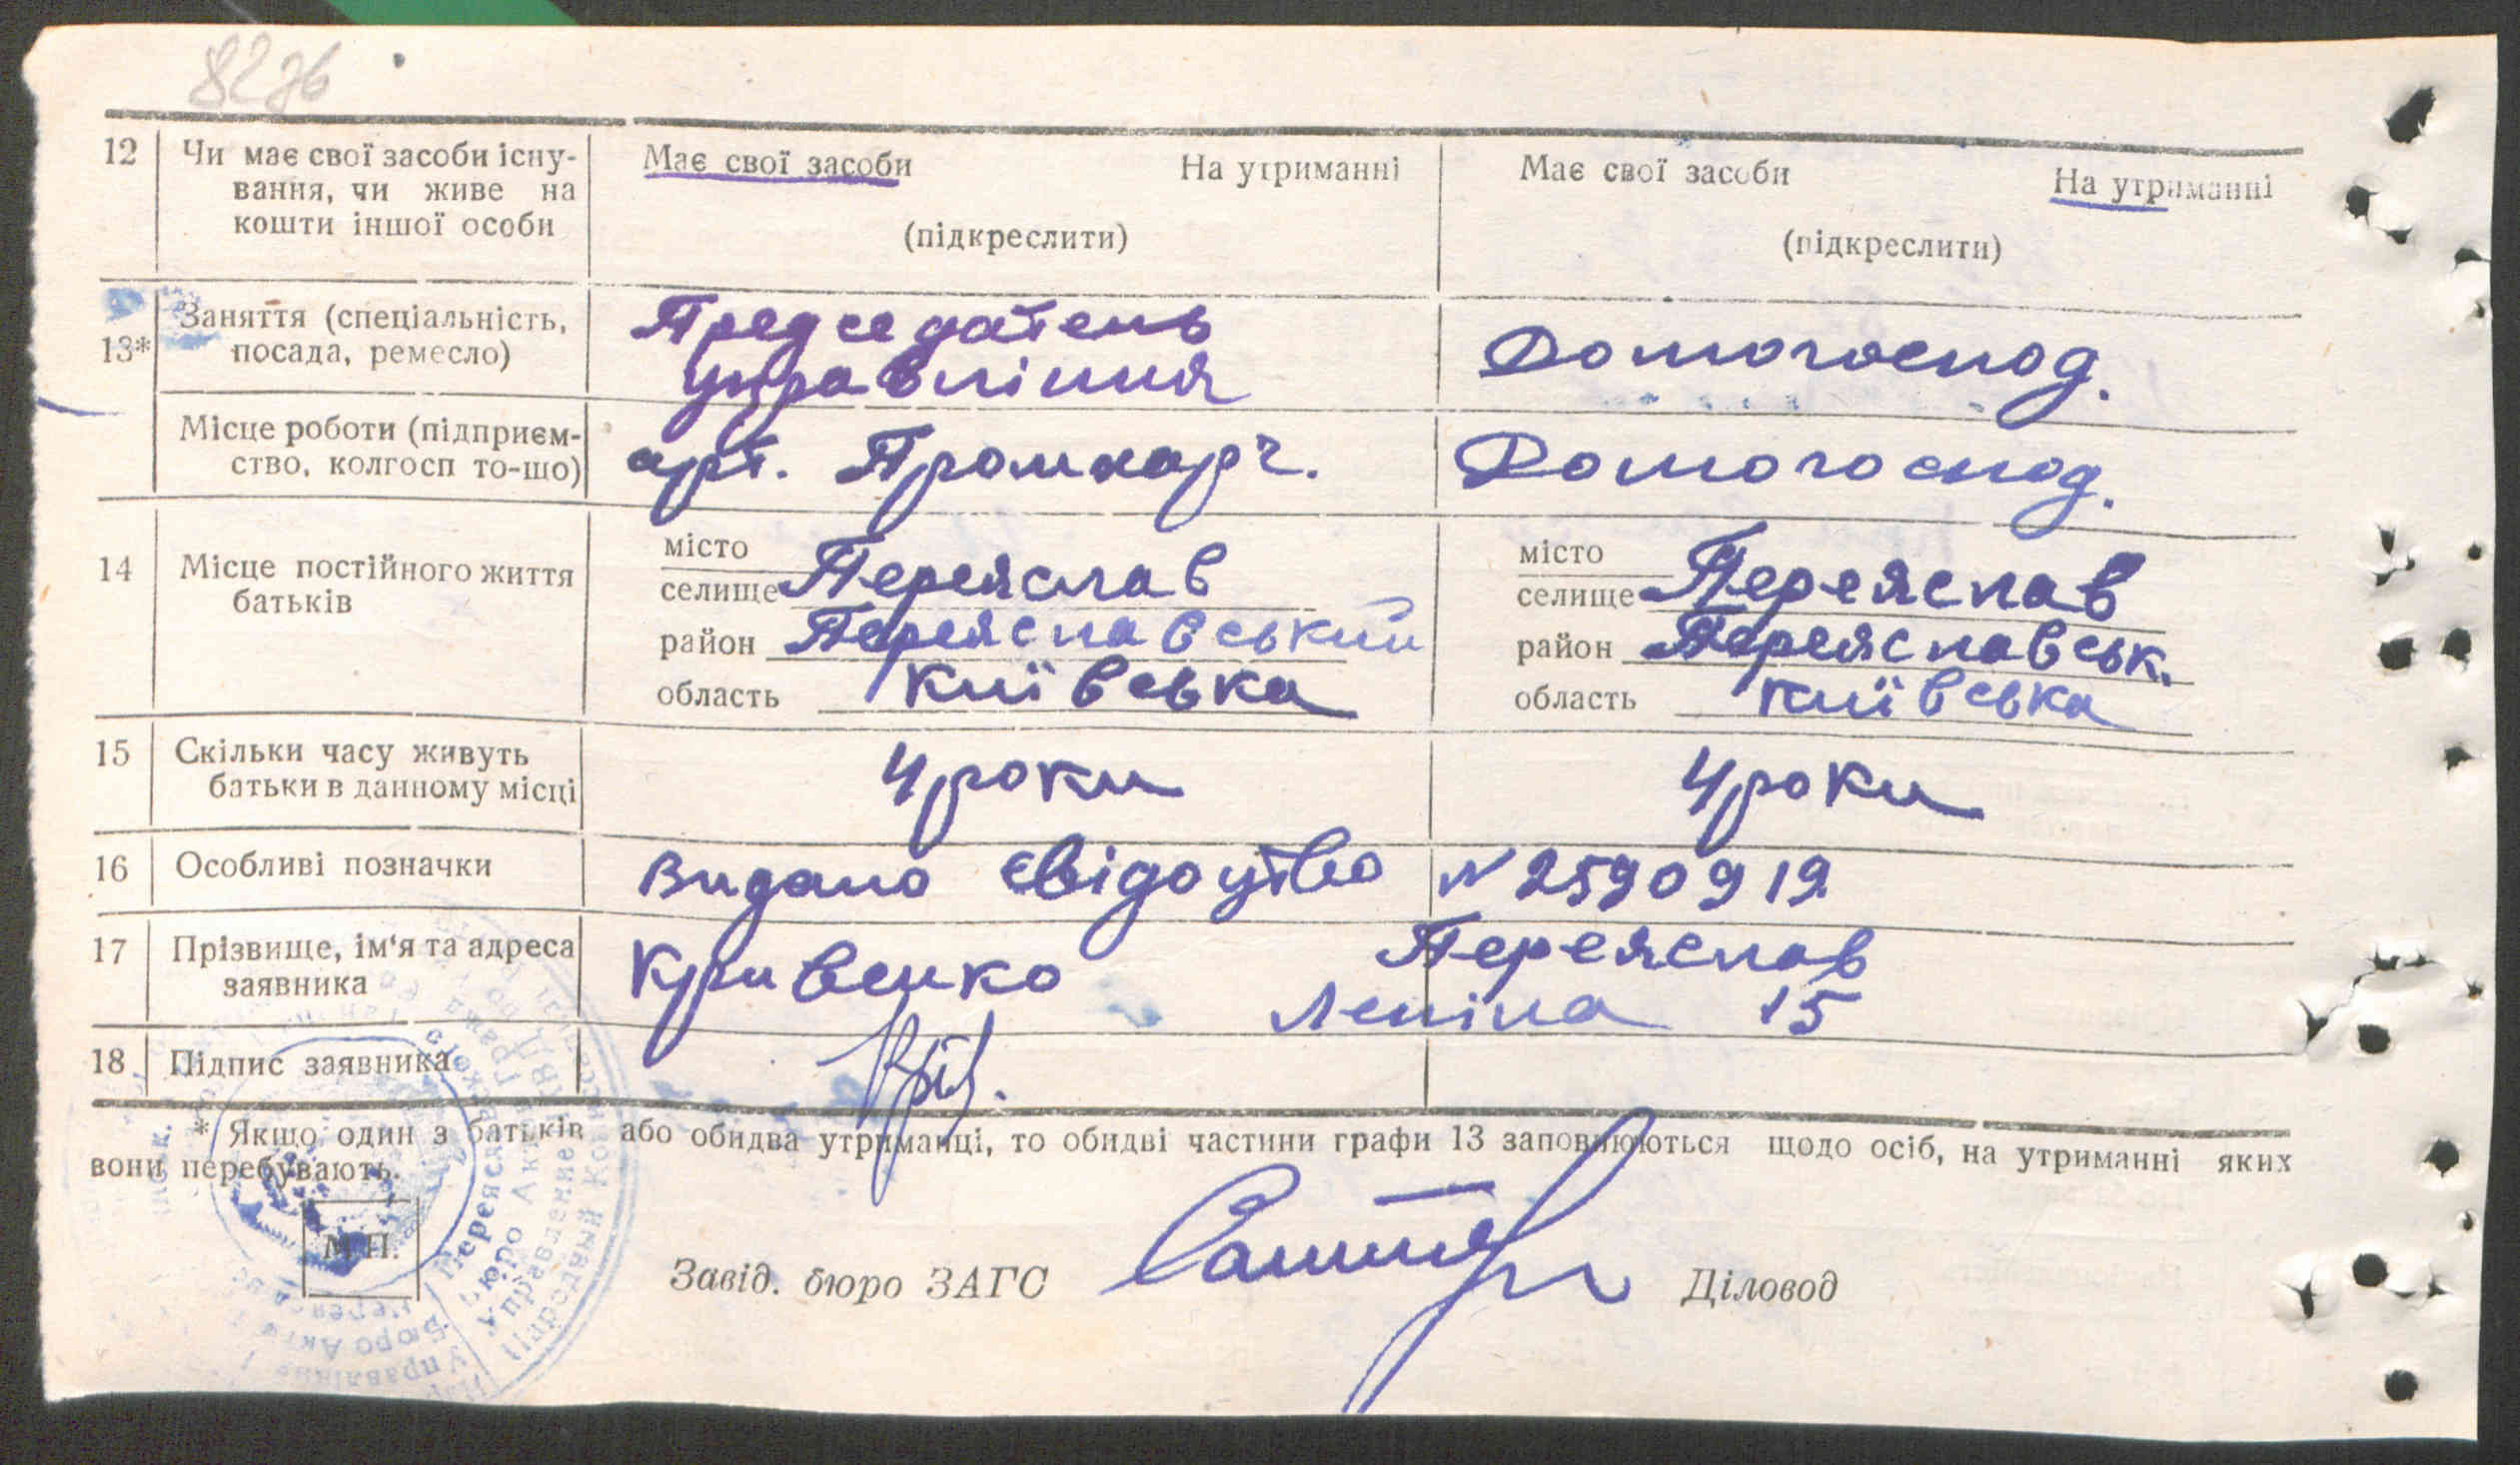 82зв
12 Чи має свої засоби існу- Має свої засоби На утриманні Має свої засоби На утриманні
вання, чи живе на
кошти іншої особи (підкреслити) (підкреслити)
13* Заняття (спеціальність, Председатель Домогоспод.
посада, ремесло) управління
Місце роботи (підприєм- арт. Промхарч. Домогоспод.
ство, колгосп то-що)
14 Місце постійного життя місто місто
батьків селище Переяслав селище Переяслав
район Переяславський район Переяславськ.
область Київська область Київська
15 Скільки часу живуть 4 роки 4 роки
батьки в данному місці
16 Особливі позначки Видано свідоцтво № 2590919
17 Прізвище, ім'я та адреса Кривенко Переяслав
заявника Леніна 15
18 Підпис заявника
* Якщо один з батьків або обидва утриманці, то обидві частини графи 13 заповнюються щодо осіб, на утриманні яких
вони перебувають.
М.П.
Завід. бюро ЗАГС Діловод